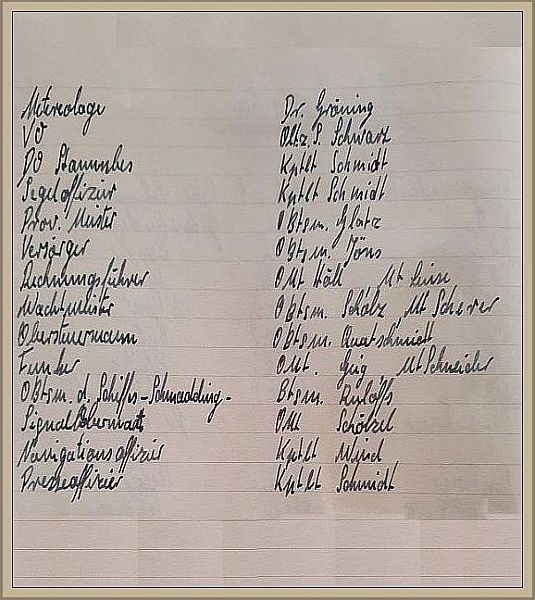 Metereologe Dr. Gröning
VO Oltz. S. Schwarz
DO Stammbes Kptlt Schmidt
Segeloffizier Kptlt Schmidt
Prov. Meister OBtsm. Glatz
Versorger OBtsm. Jöns
Rechnungsführer OMt Häll Mt Linse
Wachtmeister OBtsm. Scholz, Mt Scherer
Obersteuermann OBtsm. Quatschmidt
Funker OMt. Mt Schneider
OBtsm. d. Schiffes - Schmadding - Btsm. Ruloffs
Signalobermaat OMt Schölzel
Navigationsoffizier Kptlt Wind
Presseoffizier Kptlt Schmidt